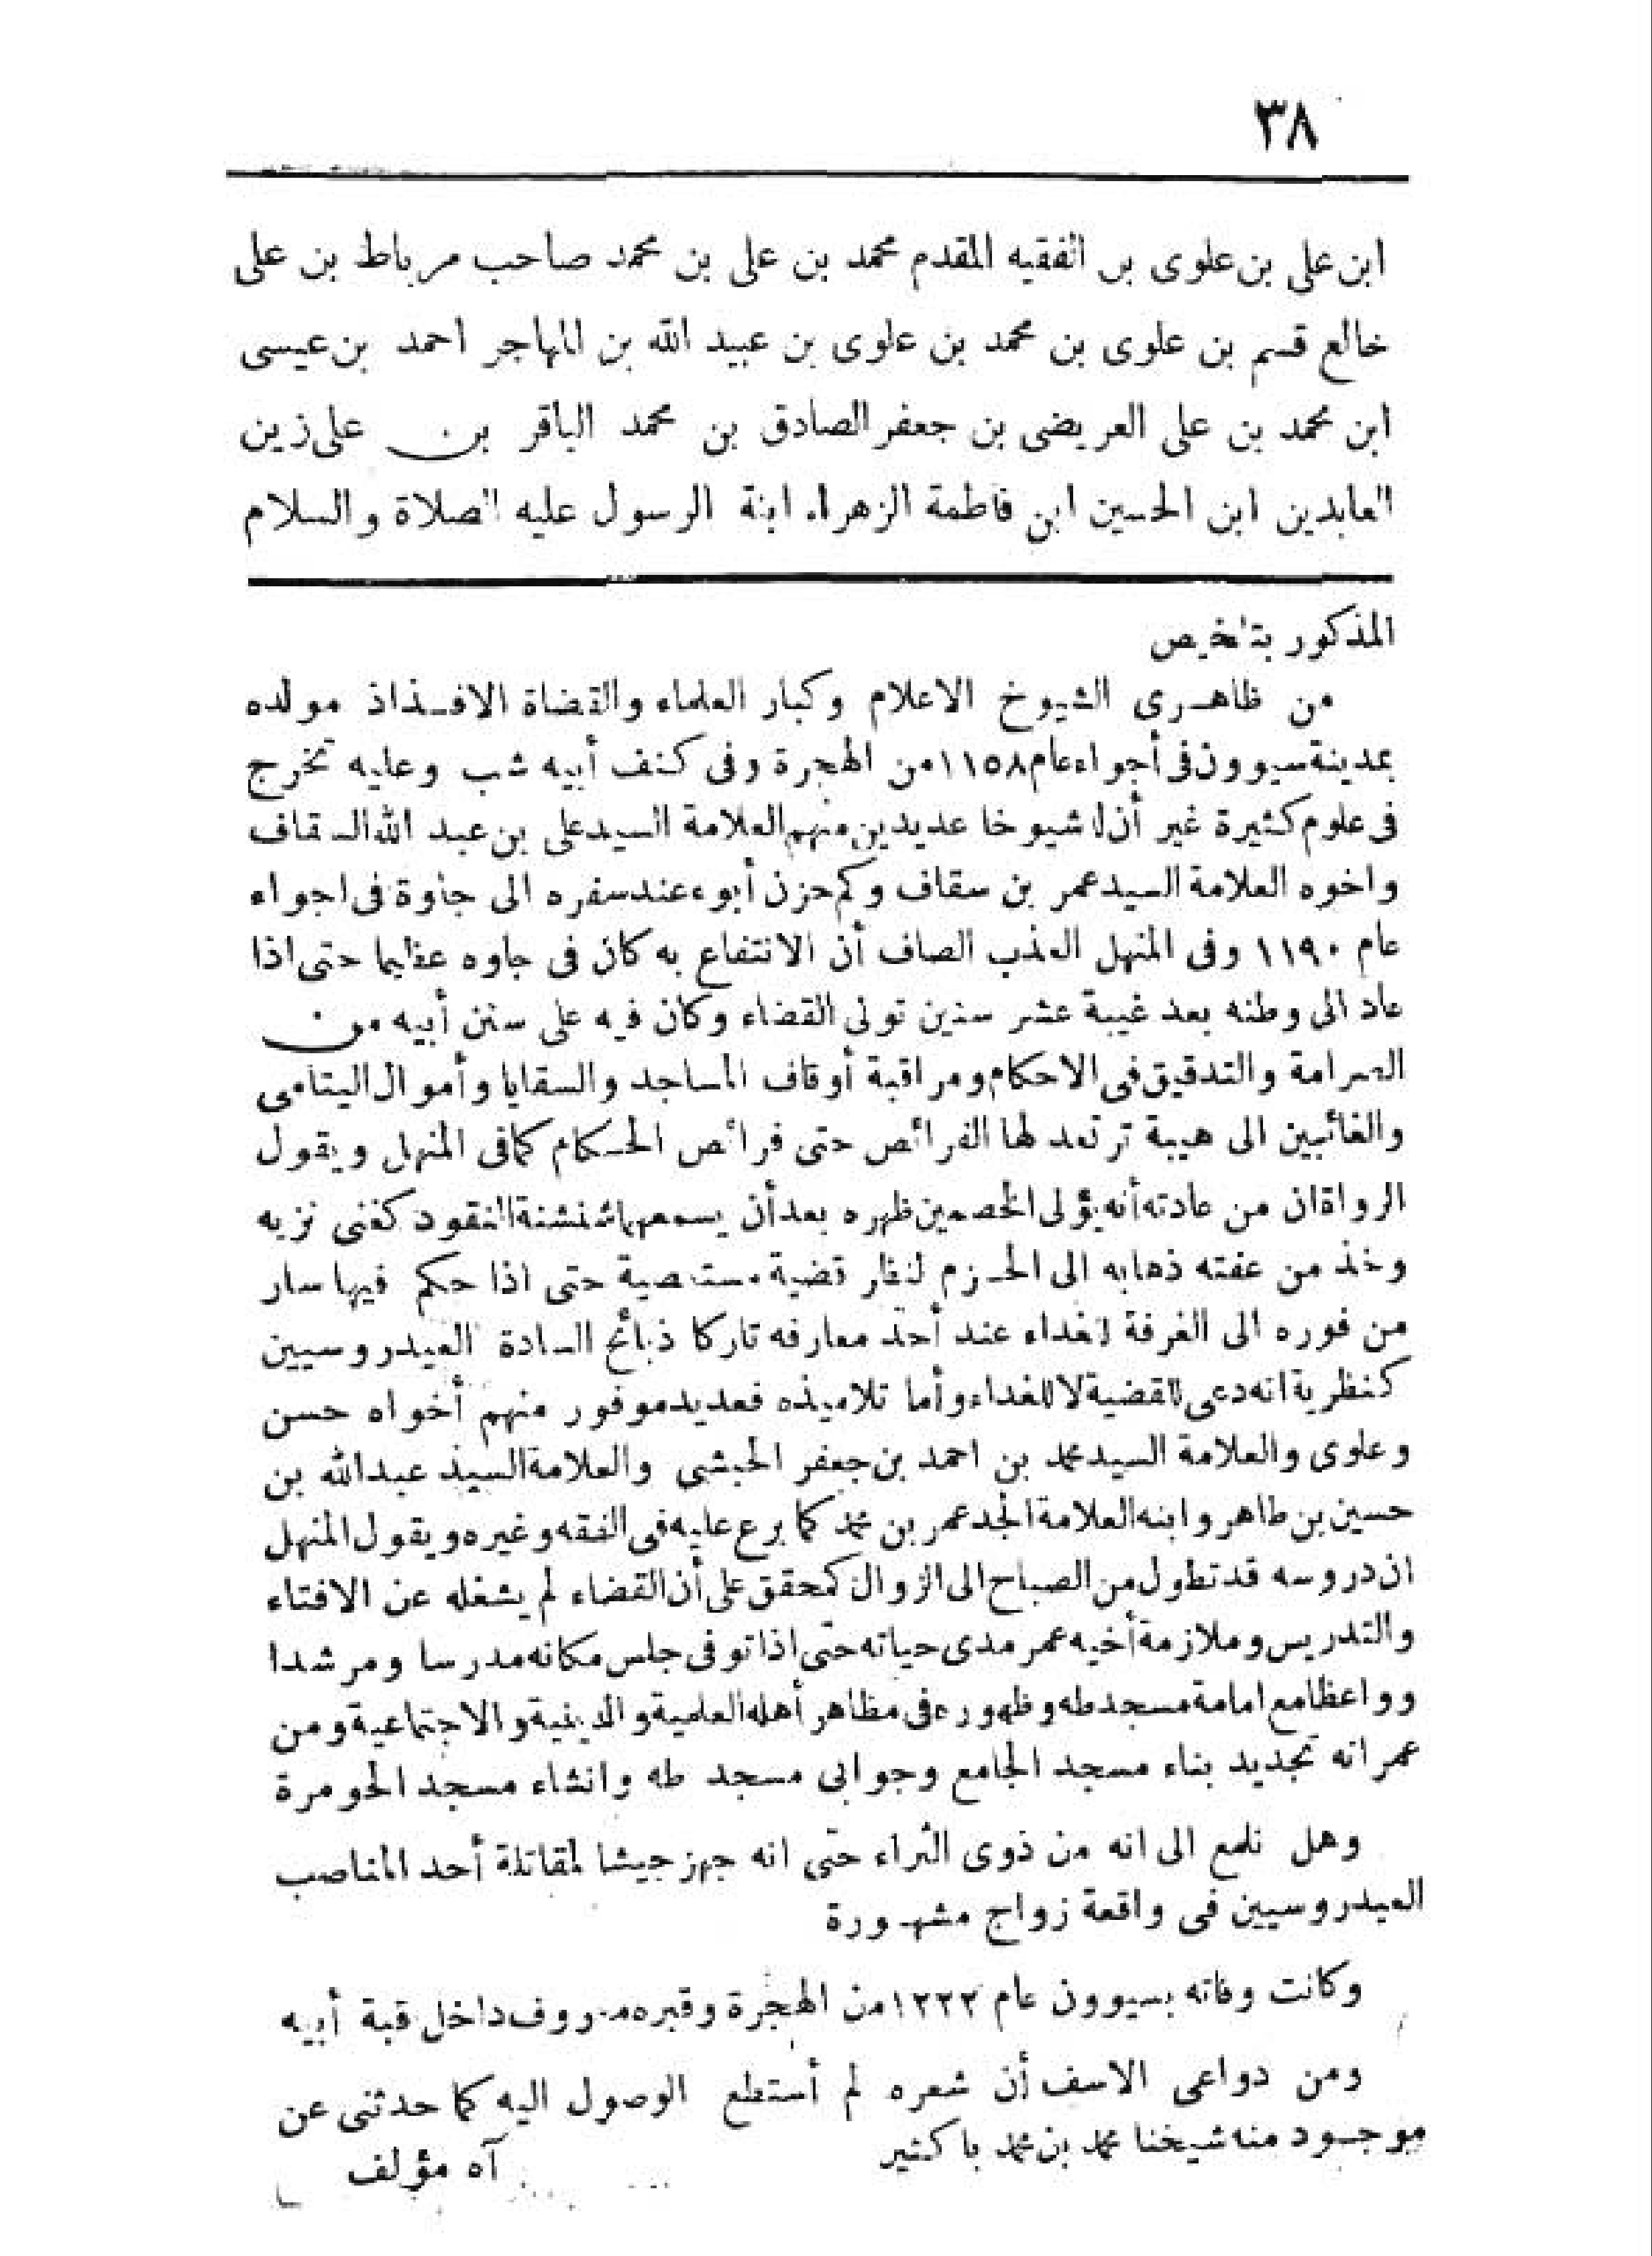 ٣٨
ابن على بن علوى بن الفقيه المقدم محمد بن على بن محمد صاحب مرباط بن على
خالع قسم بن علوى بن محمد بن علوى بن عبيد الله بن المهاجر احمد بن عيسى
ابن محمد بن على العريضى بن جعفر الصادق بن محمد الباقر بن على زين
العابدين ابن الحسين ابن فاطمة الزهراء ابنة الرسول عليه الصلاة والسلام
المذكور بتلخيص
من ظاهرى الشيوخ الاعلام وكبار العلماء والقضاة الافذاذ مولده
بمدينة سيوون فى أجواء عام ١١٥٨ من الهجرة وفى كنف أبيه شب وعليه تخرج
فى علوم كثيرة غير أن له شيوخا عديدين منهم العلامة السيد على بن عبد الله السقاف
واخوه العلامة السيد عمر بن سقاف وكم حزن أبوه عند سفره الى جاوة فى اجواء
عام ١١٩٠ وفى المنهل العذب الصاف أن الانتفاع به كان فى جاوه عظيما حتى اذا
عاد الى وطنه بعد غيبة عشر سنين تولى القضاء وكان فيه على سنن أبيه من
الصرامة والتدقيق فى الاحكام ومراقبة أوقاف المساجد والسقايا وأموال اليتامى
والغائبين الى هيبة ترتعد لها الفرائص حتى فرائص الحكام كما فى المنهل ويقول
الرواة ان من عادته أنه يؤلى الخصمين ظهره بعد أن يسمعهما شنشنة النقود كغنى نزيه
وخذ من عفته ذهابه الى الحزم لنظر قضية مستعصية حتى اذا حكم فيها سار
من فوره الى الغرفة لغداء عند أحد معارفه تاركا ذبائح السادة العيدروسيين
كنظرية انه دعى للقضية لا للغداء وأما تلاميذه فعديد موفور منهم أخواه حسن
وعلوى والعلامة السيد محمد بن احمد بن جعفر الحبشى والعلامة السيد عبد الله بن
حسين بن طاهر وابنه العلامة الجد عمر بن محمد كما برع عليه فى الفقه وغيره ويقول المنهل
ان دروسه قد تطول من الصباح الى الزوال كمحقق على أن القضاء لم يشغله عن الافتاء
والتدريس وملازمة أخيه عمر مدى حياته حتى اذا توفى جلس مكانه مدرسا ومرشدا
وواعظا مع امامة مسجد طه وظهوره فى مظاهر أهله العلمية والدينية والاجتماعية ومن
عمرانه تجديد بناء مسجد الجامع وجوابى مسجد طه وانشاء مسجد الحومرة
وهل نلمع الى انه من ذوى الثراء حتى انه جهز جيشا لمقاتلة أحد المناصب
العيدروسيين فى واقعة زواج مشهورة
وكانت وفاته بسيوون عام ١٢٢٢ من الهجرة وقبره معروف داخل قبة أبيه
ومن دواعى الاسف أن شعره لم أستطع الوصول اليه كما حدثنى عن
موجود منه شيخنا محمد بن محمد باكثير
آه مؤلف